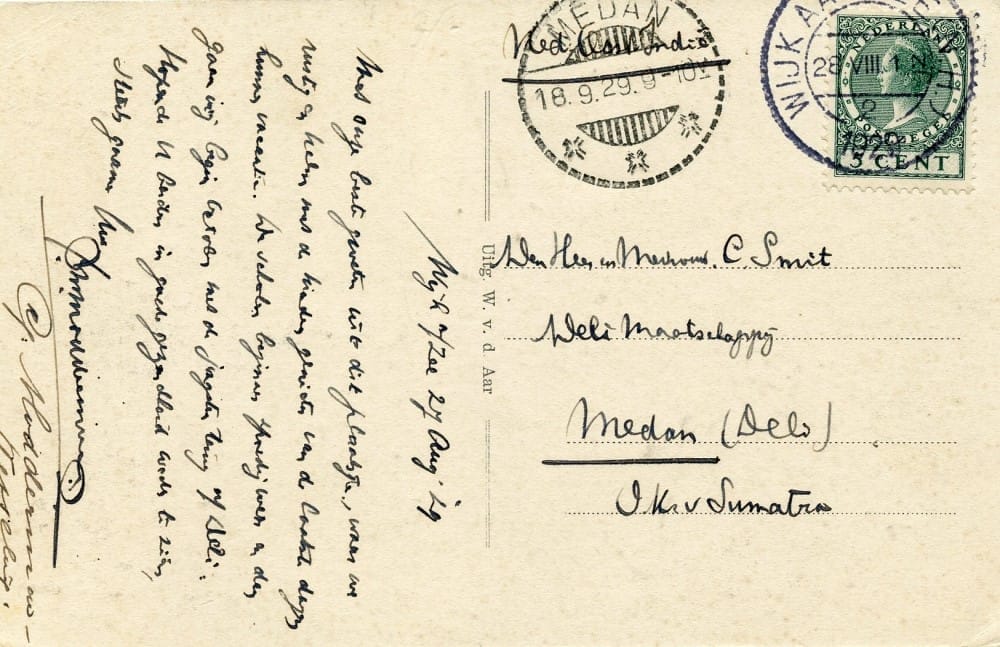 Wijk a/Zee 27 Aug '29
Met onze beste groeten uit dit plaatsje, waar we
rustig en met de kinderen genieten van de laatste dagen
hunner vacantie. De scholen beginnen spoedig weer en dan
gaan wij begin October met de jongsten terug n/ Deli.
Hopende U beiden in goede gezondheid weder te zien,
Steeds gaarne Uw
Modderman
G. Modderman
Uitg. W. v. d. Aar
Ned. Oost Indië
MEDAN
18.9.29.9-10V
WIJK AAN ZEE
28 VIII 1 N
1929
NEDERLAND
POSTZEGEL
5 CENT
Den Heer en Mevrouw C. Smit
Deli Maatschappij
Medan (Deli)
O.K. v Sumatra